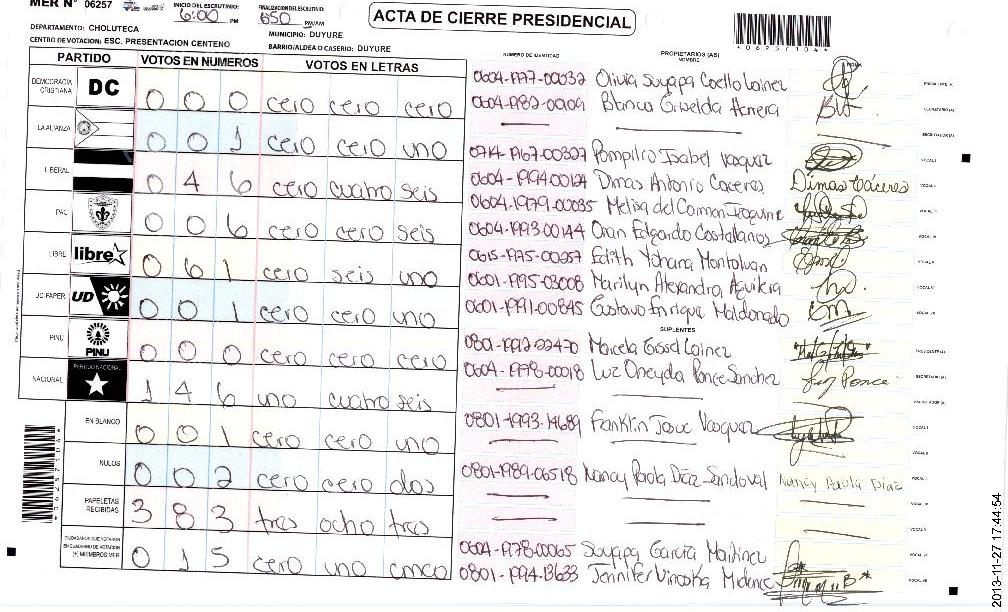 MER N° 06257 INICIO DEL ESCRUTINIO: 6:00 PM FINALIZACION DEL ESCRUTINIO: 650 PM/AM
ACTA DE CIERRE PRESIDENCIAL
*062571044*
DEPARTAMENTO: CHOLUTECA MUNICIPIO: DUYURE
CENTRO DE VOTACION: ESC. PRESENTACION CENTENO BARRIO/ALDEA O CASERIO: DUYURE
PARTIDO VOTOS EN NUMEROS VOTOS EN LETRAS
DEMOCRACIA CRISTIANA DC 0 0 0 cero cero cero
LA ALIANZA 0 0 1 cero cero uno
LIBERAL 0 4 6 cero cuatro seis
PAC 0 0 6 cero cero seis
LIBRE libre 0 6 1 cero seis uno
UD-FAPER UD 0 0 1 cero cero uno
PINU PINU 0 0 0 cero cero cero
NACIONAL PARTIDO NACIONAL 1 4 6 uno cuatro seis
EN BLANCO 0 0 1 cero cero uno
NULOS 0 0 2 cero cero dos
PAPELETAS RECIBIDAS 3 8 3 tres ocho tres
CIUDADANOS QUE VOTARON EN CUADERNO DE VOTACION (+) MIEMBROS MER 0 1 5 cero uno cinco
NUMERO DE IDENTIDAD PROPIETARIOS (AS) NOMBRE FIRMA
0604-1977-00032 Olivia Suyapa Coello Lainez PRESIDENTE (A)
0604-1982-00109 Blanca Griselda Herrera SECRETARIO (A)
ESCRUTADOR (A)
0714-1967-00307 Pompilio Isabel Vasquez VOCAL I
0604-1994-00124 Dimas Antonio Caceres Dimas Cáceres VOCAL
0604-1979-00035 Melixa del Carmen
0604-1993-00144 Oran Edgardo Castellanos
0615-1975-00057 Edith Yohana Montoluan
0601-1995-03008 Marilyn Alexandra Aguilera VOCAL
0601-1991-00845 Gustavo Enrique Maldonado VOCAL
SUPLENTES
0801-1992-22470 Marcela Gissel Lainez PRESIDENTE (A)
0604-1978-00018 Luz Oneyda Ponce Sanchez Luz Ponce SECRETARIO (A)
ESCRUTADOR (A)
0801-1993-14689 Franklin Josue Vasquez VOCAL I
0801-1989-06518 Nancy Paola Díaz Sandoval Nancy Paola Díaz VOCAL
0604-1978-00065 Suyapa Garcia Martinez
0801-1994-13633 Jennifer
2013-11-27 17:44:54